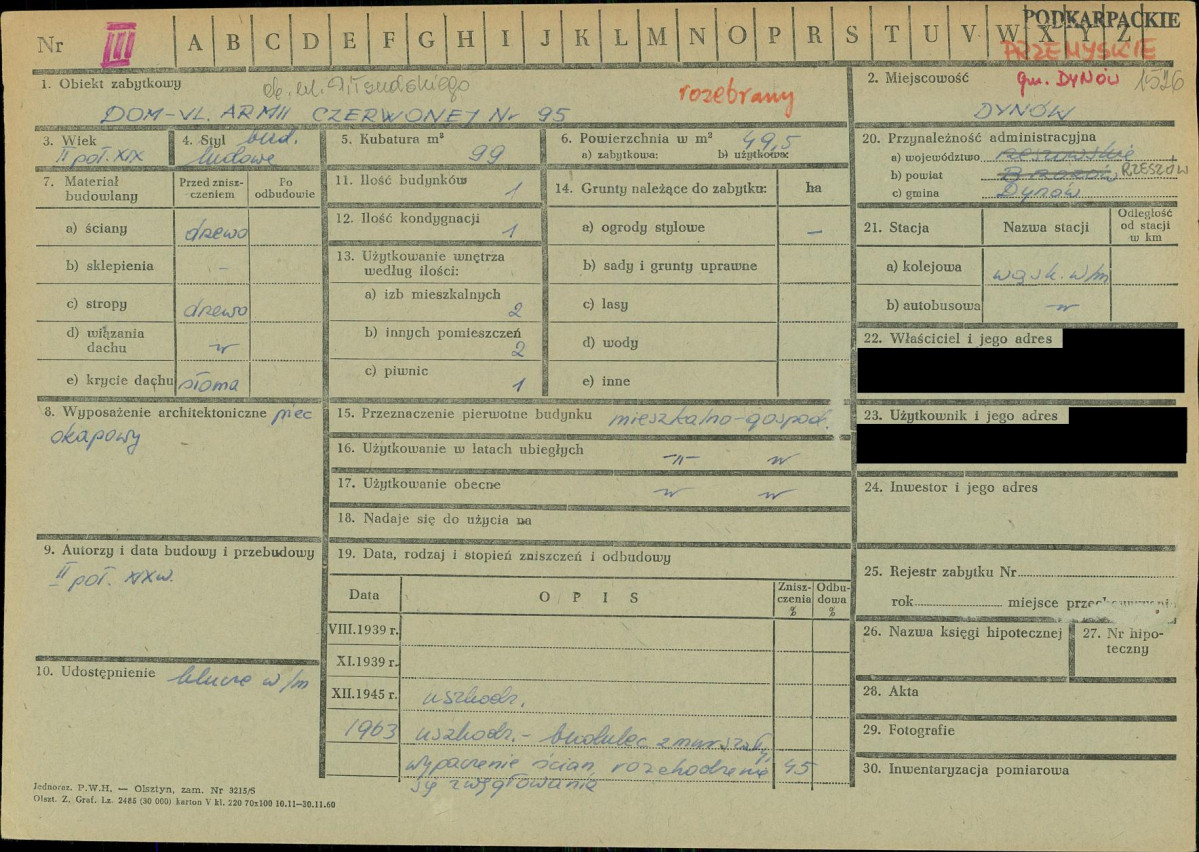 PODKARPACKIE
Nr III A B C D E F G H I J K L M N O P R S T U V W X Y Z
PRZEMYSKIE
1. Obiekt zabytkowy ob. ul. Piłsudskiego
rozebrany
DOM-UL. ARMII CZERWONEJ Nr 95
2. Miejscowość gm. DYNÓW 1526
DYNÓW
3. Wiek
II poł. XIX
4. Styl bud.
ludowe
5. Kubatura m³
99
6. Powierzchnia w m² 49,5
a) zabytkowa: b) użytkowa:
20. Przynależność administracyjna
a) województwo rzeszowskie
b) powiat Brzozów RZESZÓW
c) gmina Dynów
7. Materiał budowlany
Przed zniszczeniem
Po odbudowie
a) ściany drewo
b) sklepienia –
c) stropy drewo
d) wiązania dachu -"-
e) krycie dachu słoma
11. Ilość budynków 1
12. Ilość kondygnacji 1
13. Użytkowanie wnętrza
według ilości:
a) izb mieszkalnych 2
b) innych pomieszczeń 2
c) piwnic 1
14. Grunty należące do zabytku: ha
a) ogrody stylowe –
b) sady i grunty uprawne
c) lasy
d) wody
e) inne
21. Stacja Nazwa stacji Odległość od stacji w km
a) kolejowa wąsk. w/m
b) autobusowa -"-
22. Właściciel i jego adres
23. Użytkownik i jego adres
8. Wyposażenie architektoniczne piec
okapowy
15. Przeznaczenie pierwotne budynku mieszkalno-gospod.
16. Użytkowanie w latach ubiegłych -"- -"-
17. Użytkowanie obecne -"- -"-
18. Nadaje się do użycia na
24. Inwestor i jego adres
9. Autorzy i data budowy i przebudowy
II poł. XIX w.
19. Data, rodzaj i stopień zniszczeń i odbudowy
Data OPIS Zniszczenia % Odbudowa %
VIII.1939 r.
XI.1939 r.
XII.1945 r. uszkodz.
1963 uszkodz. – budulec zmurszały,
wypaczenie ścian, rozchodzenie 45
się zwęgłowania
25. Rejestr zabytku Nr
rok miejsce przechowywania
26. Nazwa księgi hipotecznej
27. Nr hipoteczny
10. Udostępnienie klucze w/m
28. Akta
29. Fotografie
30. Inwentaryzacja pomiarowa
Jednoraz. P.W.H. — Olsztyn, zam. Nr 3215/S
Olszt. Z. Graf. Lz. 2485 (30 000) karton V kl. 220 70x100 10.11—30.11.60